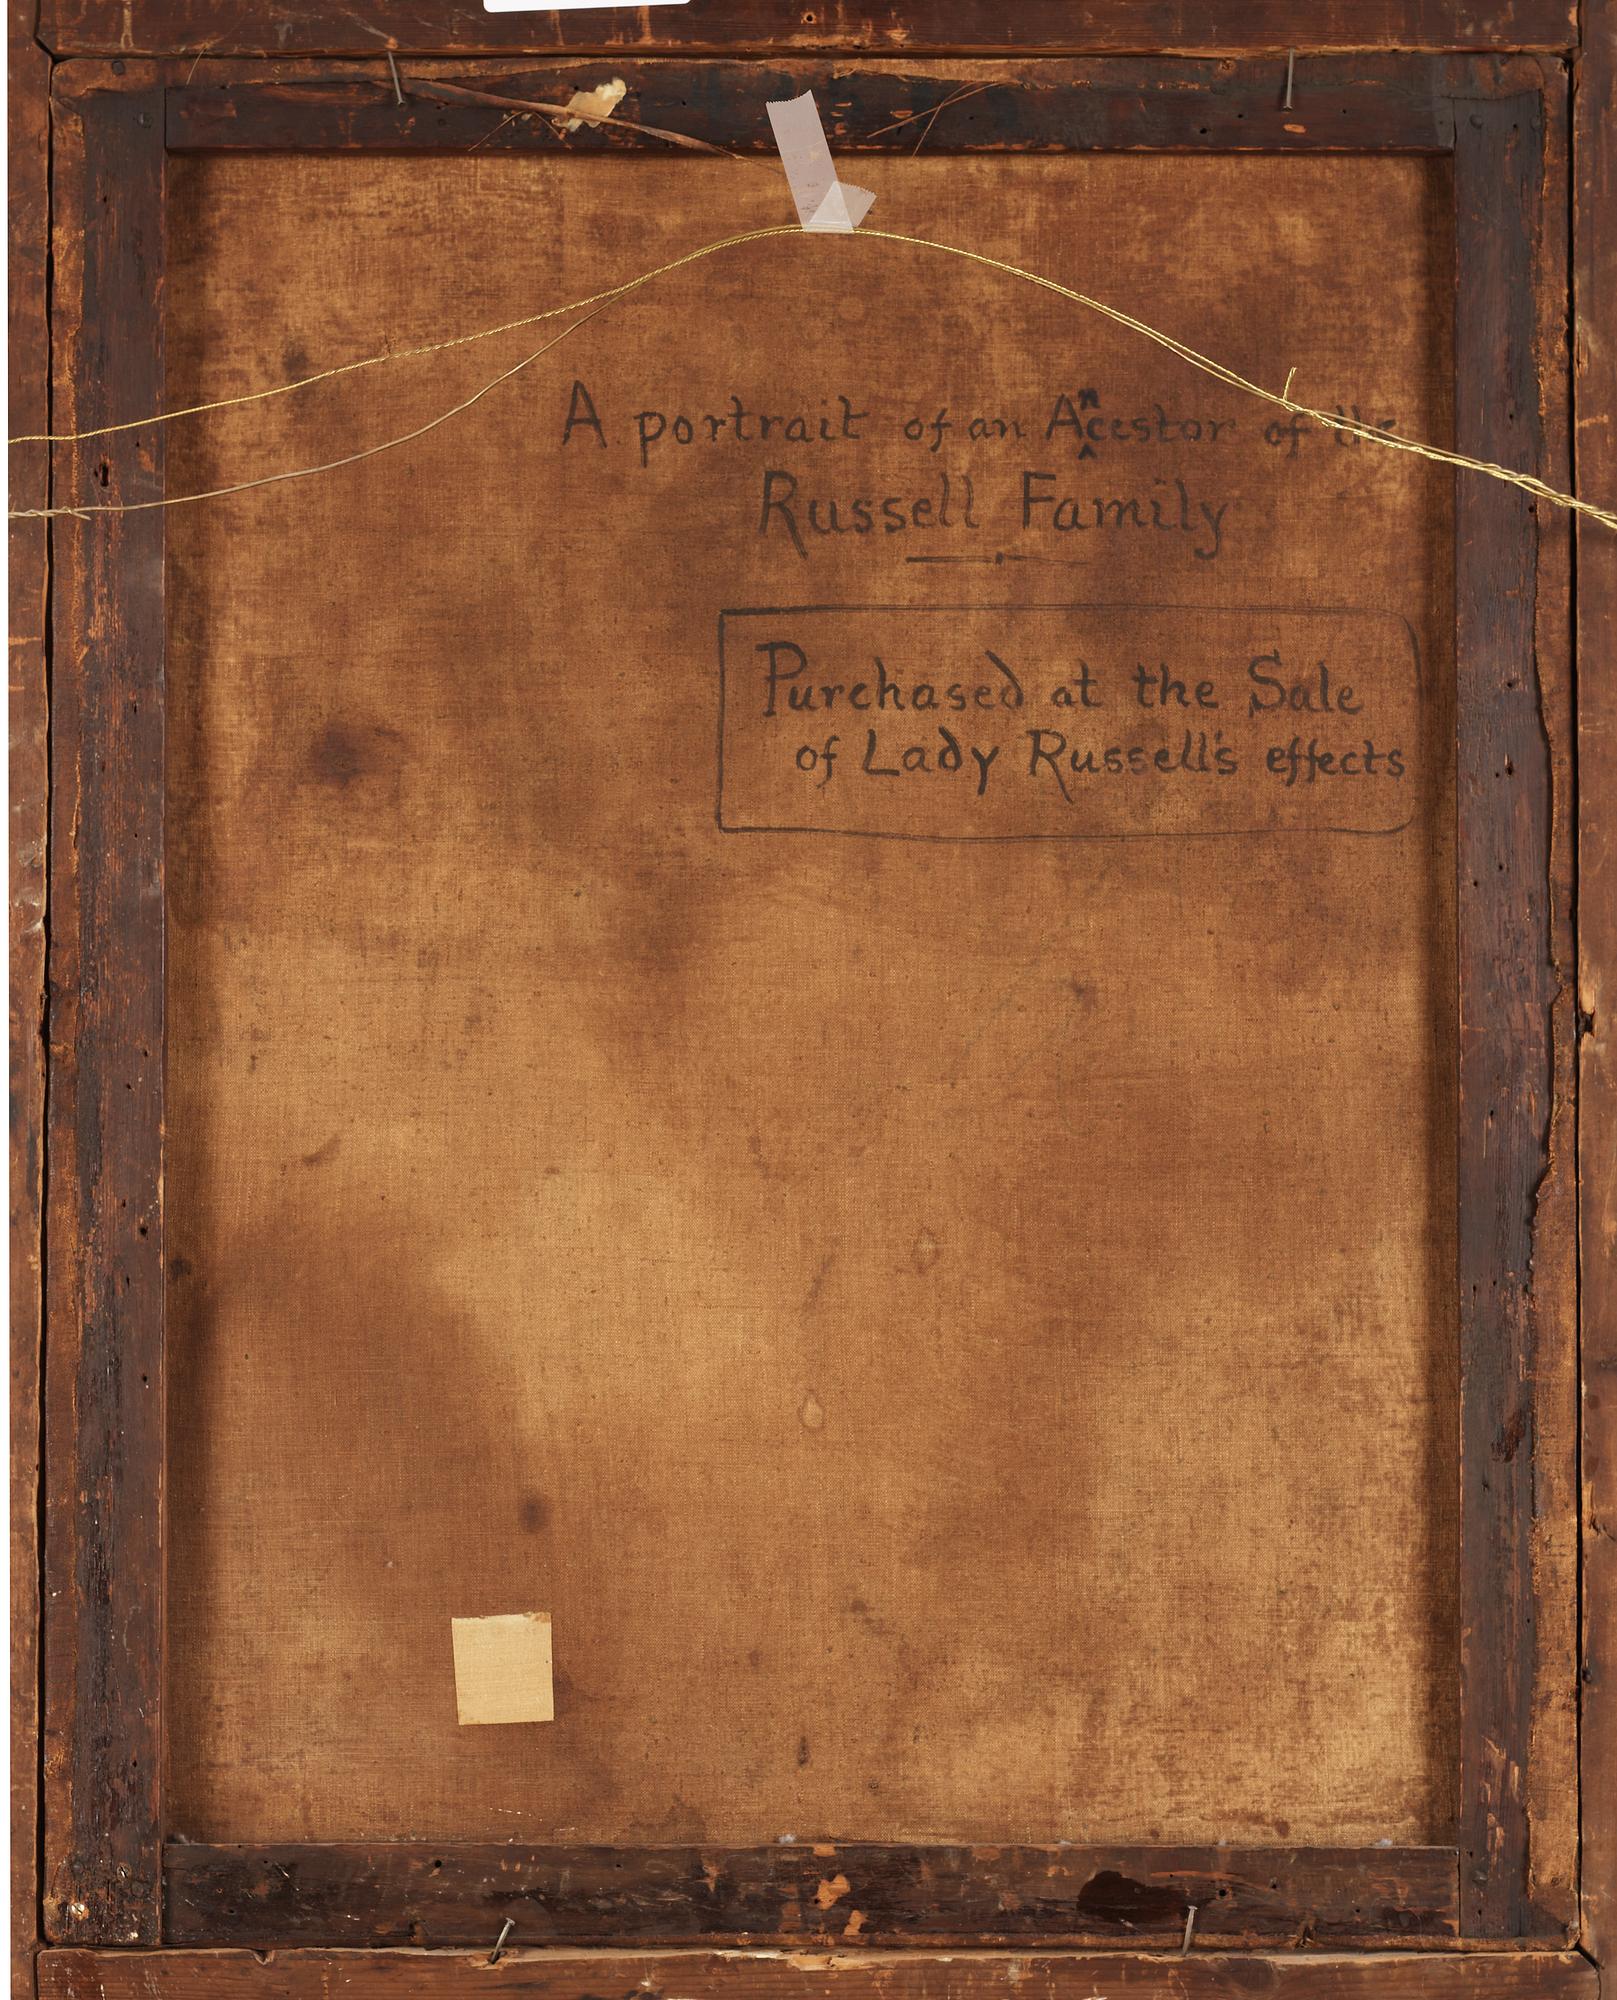 A portrait of an Ancestor of the
Russell Family
Purchased at the Sale
of Lady Russell's effects